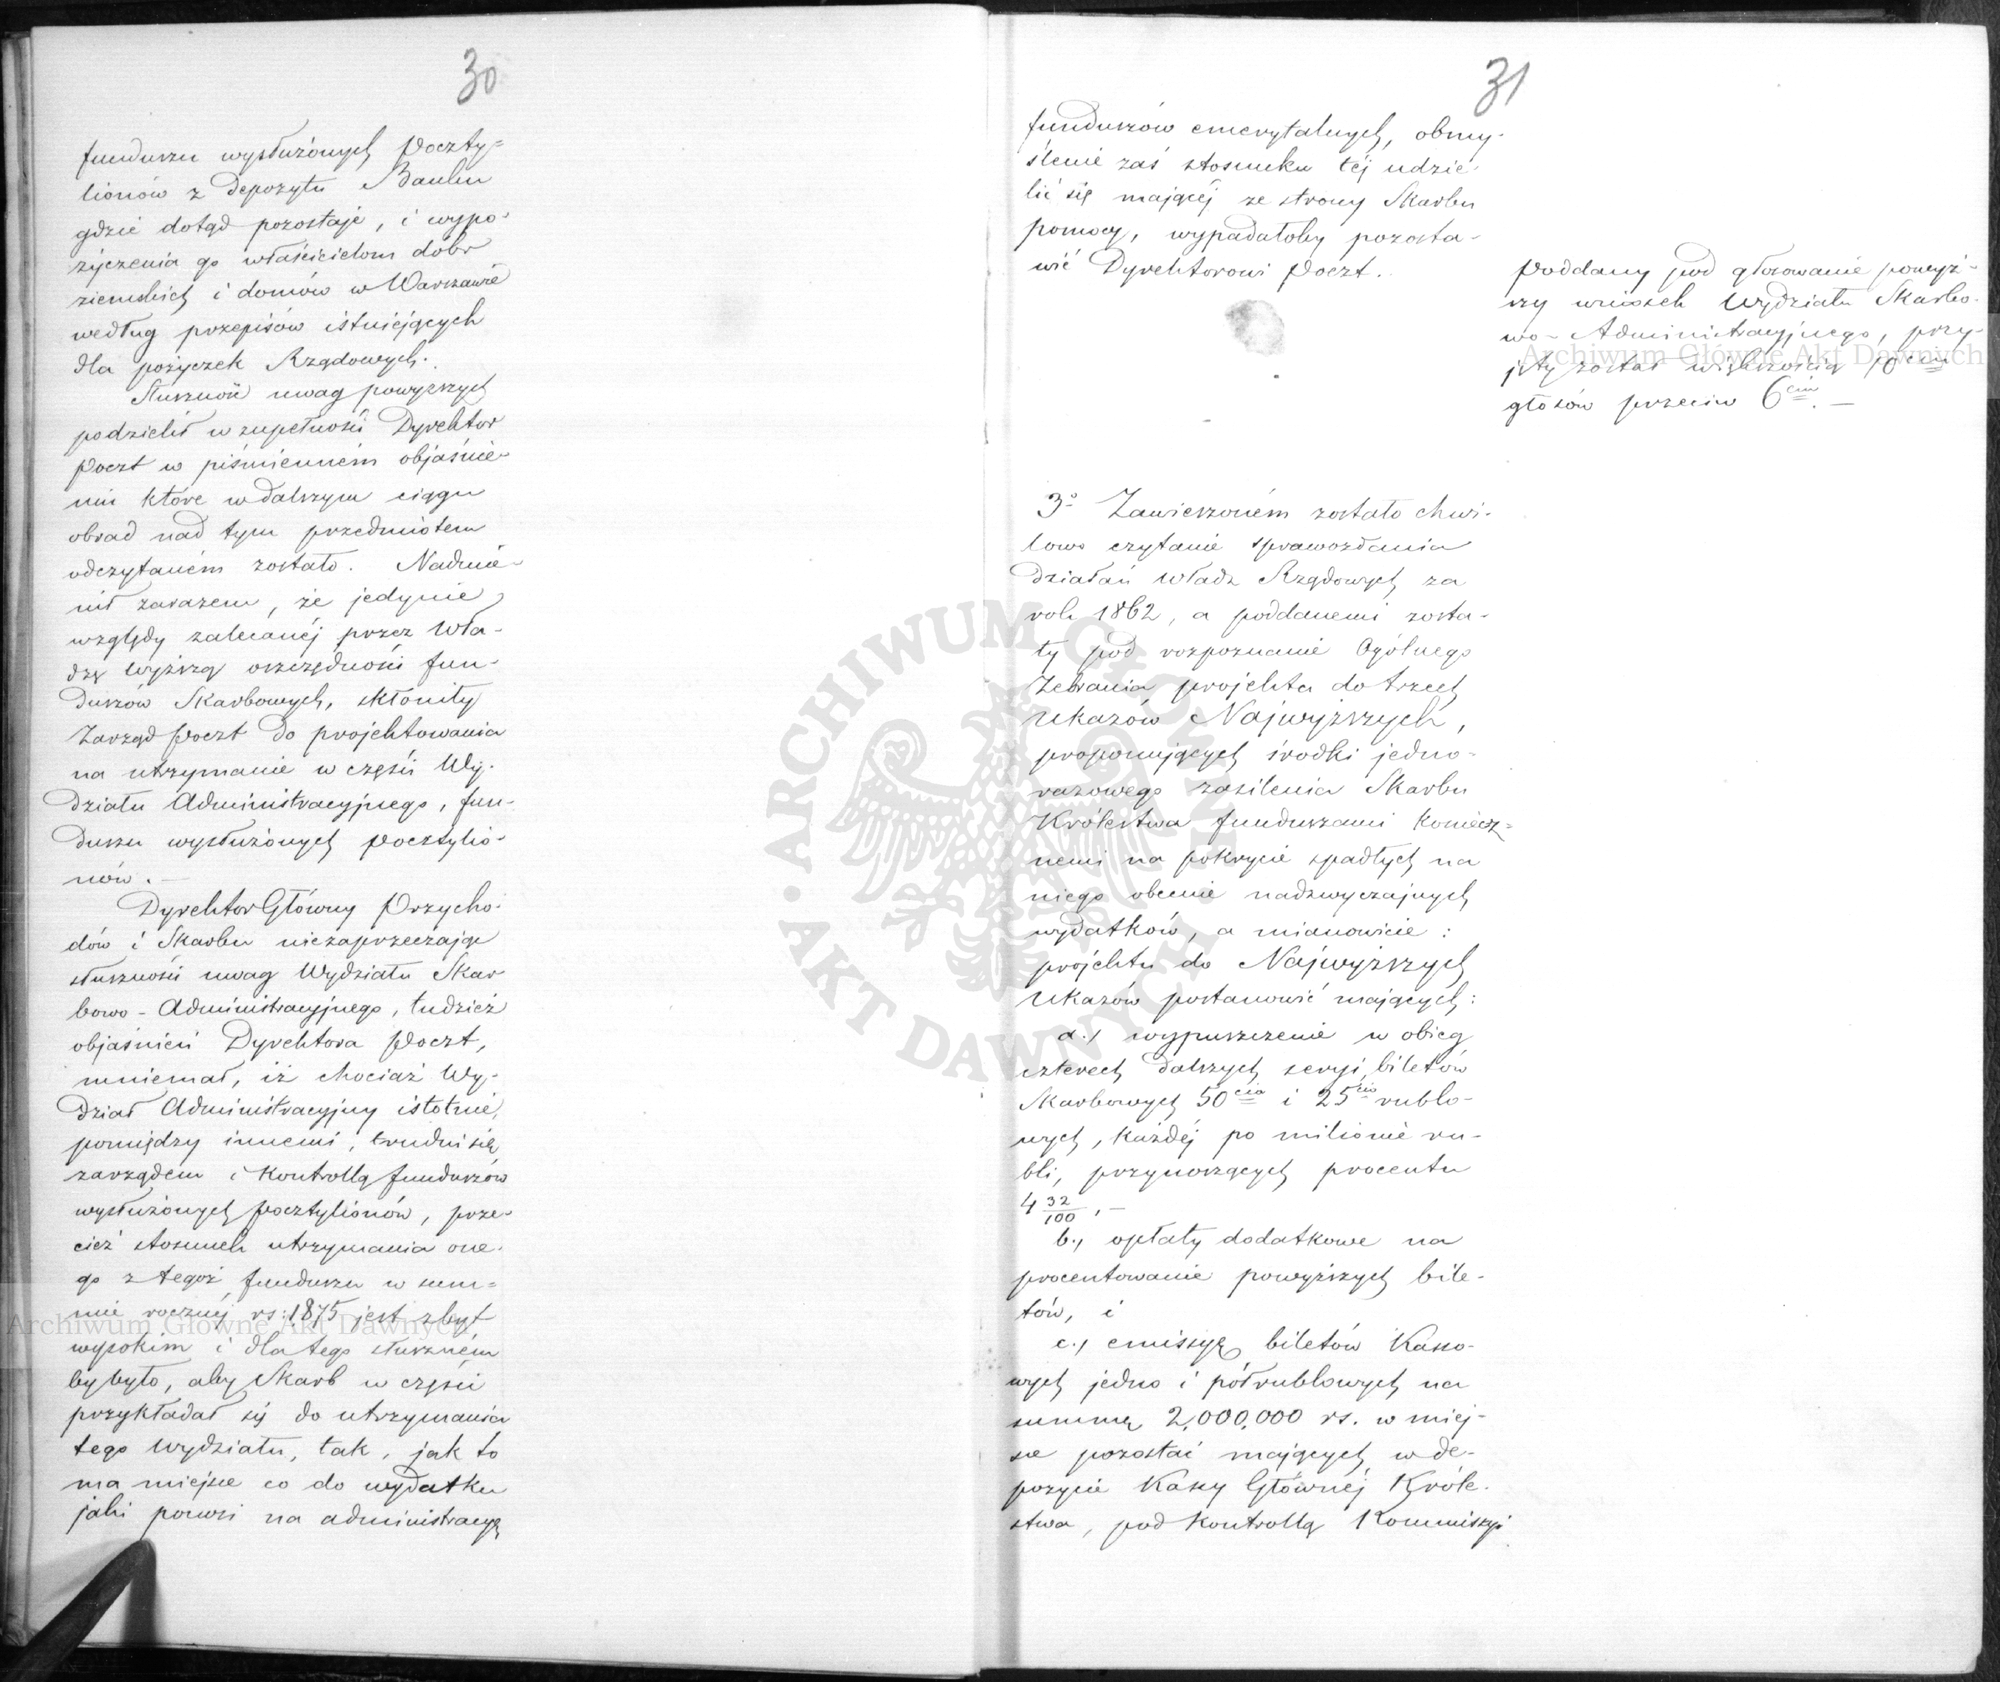 30
funduszu wysłużonych Poczty=
lionów z depozytu Banku
gdzie dotąd pozostaje, i wypo-
życzenia go właścicielom dóbr
ziemskich i domów w Warszawie
według przepisów istniejących
dla pożyczek Rządowych.
Słuszność uwag powyższych
podzielił w zupełności Dyrektor
Poczt w piśmiennem objaśnie-
niu które w dalszym ciągu
obrad nad tym przedmiotem
odczytaném zostało. Nadmie-
nił zarazem, że jedynie
względy zalecanéj przez Wła-
dzę wyższą oszczędności fun-
duszów Skarbowych, skłoniły
Zarząd Poczt do projektowania
na utrzymanie w części Wy-
działu Administracyjnego, fun-
duszu wysłużonych Pocztylio-
nów. —
Dyrektor Główny Przycho-
dów i Skarbu niezaprzeczając
słuszności uwag Wydziału Skar-
bowo - Administracyjnego, tudzież
objaśnień Dyrektora Poczt,
mniemał, iż chociaż Wy-
dział Administracyjny istotnie,
pomiędzy innemi, trudni się
zarządem i Kontrollą funduszów
wysłużonych pocztylionów, prze-
cież stosunek utrzymania one-
go z tegoż funduszu w sum=
mie rocznéj rs: 1875 jest zbyt
wysokim i dla tego słuszném
by było, aby Skarb w części
przykładał się do utrzymania
tego Wydziału, tak, jak to
ma miejsce co do wydatku
jaki ponosi na administracyę
31
funduszów emerytalnych, obmy-
ślenie zaś stosunku téj udzie-
lić się mającéj ze strony Skarbu
pomocy, wypadałoby pozosta-
wić Dyrektorowi Poczt.
Poddany pod głosowanie powyż-
szy wniosek Wydziału Skarbo-
wo - Administracyjnego, przy-
jęty został większością 10ciu
głosów przeciw 6ciu. —
3o Zawieszoném zostało chwi-
lowo czytanie sprawozdania
działań Władz Rządowych za
rok 1862, a poddanemi zosta-
ły pod rozpoznanie Ogólnego
Zebrania projekta do trzech
Ukazów Najwyższych,
proponujących środki jedno-
razowego zasilenia Skarbu
Królestwa funduszami koniecz=
nemi na pokrycie spadłych na
niego obecnie nadzwyczajnych
wydatków, a mianowicie:
projektu do Najwyższych
Ukazów postanowić mających:
a./ wypuszczenie w obieg
czterech dalszych seryi biletów
Skarbowych 50cio i 25cio rublo-
wych, każdéj po milionie ru-
bli, przynoszących procentu
4 32/100, —
b./ opłaty dodatkowe na
procentowanie powyższych bile-
tów, i
c./ emissyę biletów Kasso-
wych jedno i półrublowych na
summę 2,000,000 rs. w miej-
sce pozostać mających w de-
pozycie Kassy Głównéj Króle-
stwa, pod Kontrollą Kommissyi
Archiwum Główne Akt Dawnych
Archiwum Główne Akt Dawnych
ARCHIWUM GŁÓWNE · AKT DAWNYCH ·